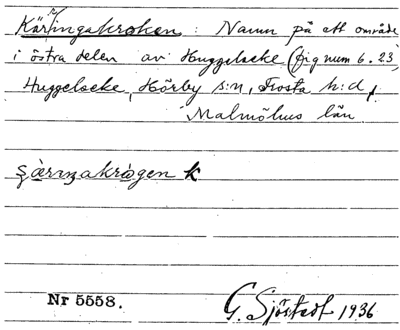 Kärlingakroken: Namn på ett område
i östra delen av Huggelseke (fig num 6.23)
Huggelseke, Hörby s:n, Frosta h:d,
Malmöhus län
k
Nr 5558.
G. Sjöstedt 1936